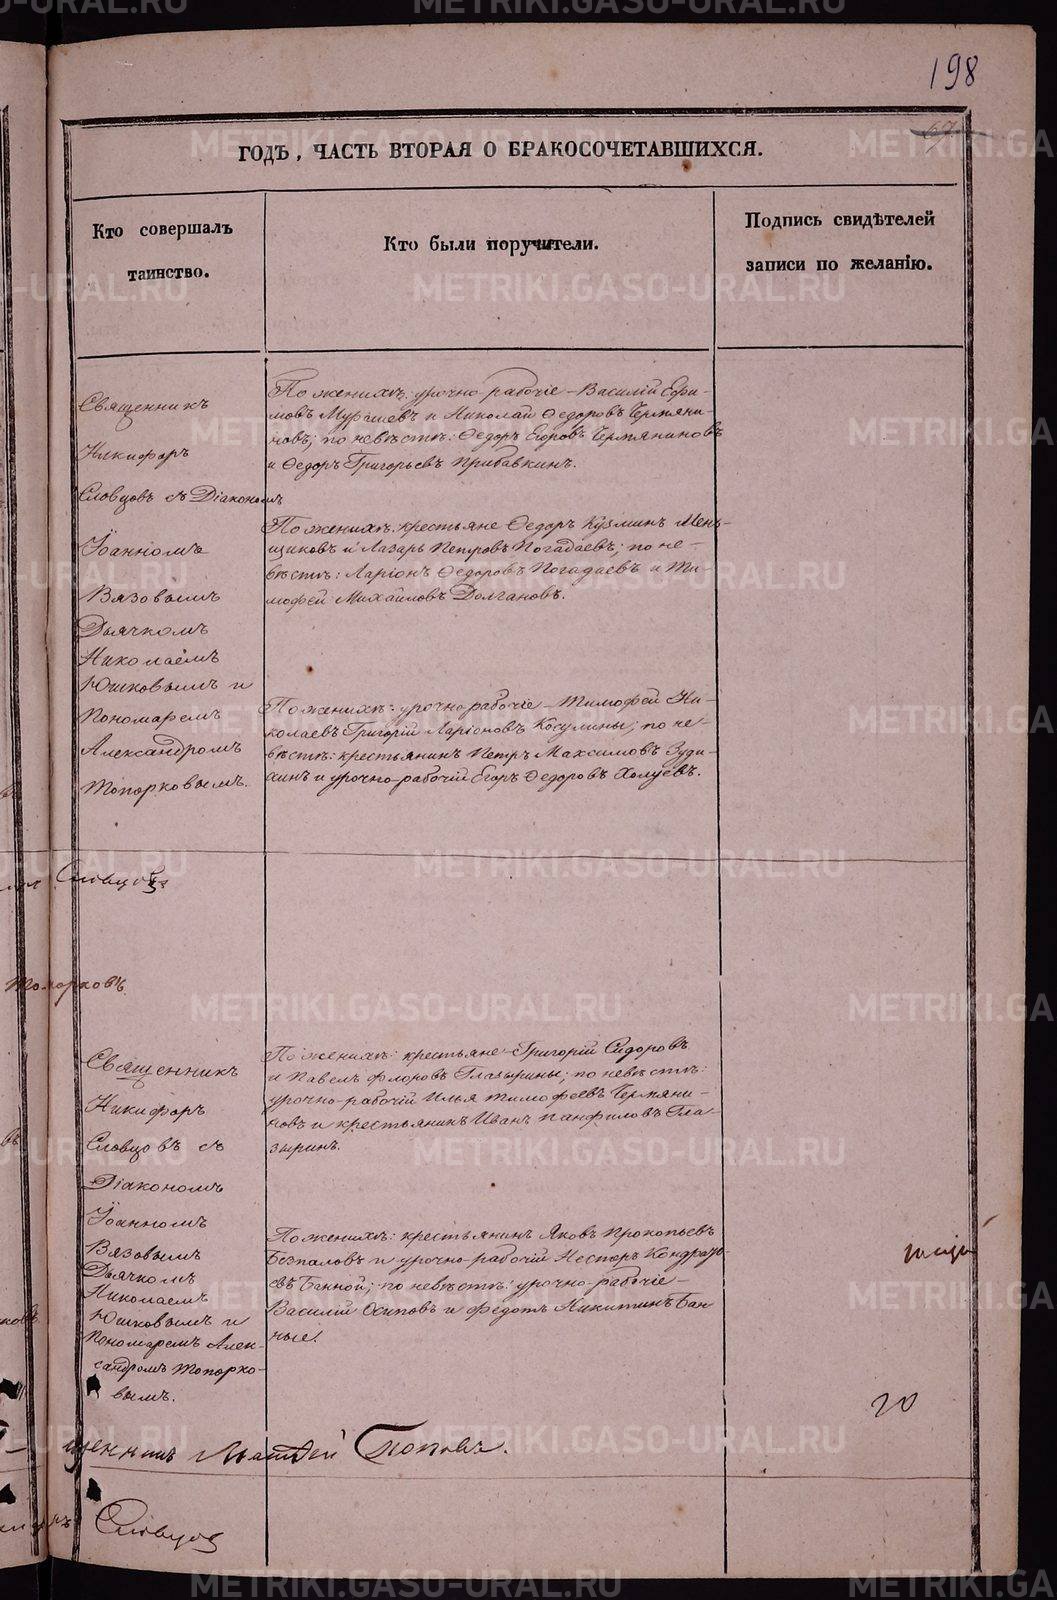 198
67
ГОДЪ, ЧАСТЬ ВТОРАЯ О БРАКОСОЧЕТАВШИХСЯ.
Кто совершалъ
таинство.
Кто были поручители.
Подпись свидѣтелей
записи по желанію.
Священникъ
Никифоръ
Словцовъ съ Діакономъ
Іоанномъ
Вязовымъ
Дьячкомъ
Николаемъ
Юшковымъ и
Пономаремъ
Александромъ
Топорковымъ.
По женихѣ: урочно-рабочіе – Василій Ефи-
мовъ Мурашевъ и Николай Ѳедоровъ Черемяни-
новъ; по невѣстѣ: Ѳедоръ Егоровъ Черемяниновъ
и Ѳедоръ Григорьевъ Прибавкинъ.
По женихѣ: крестьяне Ѳедоръ Кузминъ Мень-
щиковъ и Лазарь Петровъ Погадаевъ; по не-
вѣстѣ: Ларіонъ Ѳедоровъ Погадаевъ и Ти-
мофей Михайловъ Долгановъ.
По женихѣ: урочно-рабочіе – Тимофей Ни-
колаевъ Григорій Ларіоновъ Косулины; по не-
вѣстѣ: крестьянинъ Петръ Максимовъ Зуди-
хинъ и урочно-рабочій Егоръ Ѳедоровъ Холуевъ.
Словцовъ
Топорковъ
Священникъ
Никифоръ
Словцовъ съ
Діакономъ
Іоанномъ
Вязовымъ
Дьячкомъ
Николаемъ
Юшковымъ и
Пономаремъ Алек-
сандромъ Топорко-
вымъ.
По женихѣ: крестьяне Григорій Сидоровъ
и Павелъ Флоровъ Глазырины; по невѣстѣ:
урочно-рабочій Илья Тимофеевъ Черемяни-
новъ и крестьянинъ Иванъ Панфиловъ Гла-
зыринъ.
По женихѣ: крестьянинъ Яковъ Прокопьевъ
Безпаловъ и урочно-рабочій Несторъ Кондратье-
въ Банной; по невѣстѣ: урочно-рабочіе –
Василій Осиповъ и Федотъ Никитинъ Бан-
ные.
20
щенникъ Матѳей Поповъ.
Словцов
METRIKI.GASO-URAL.RU